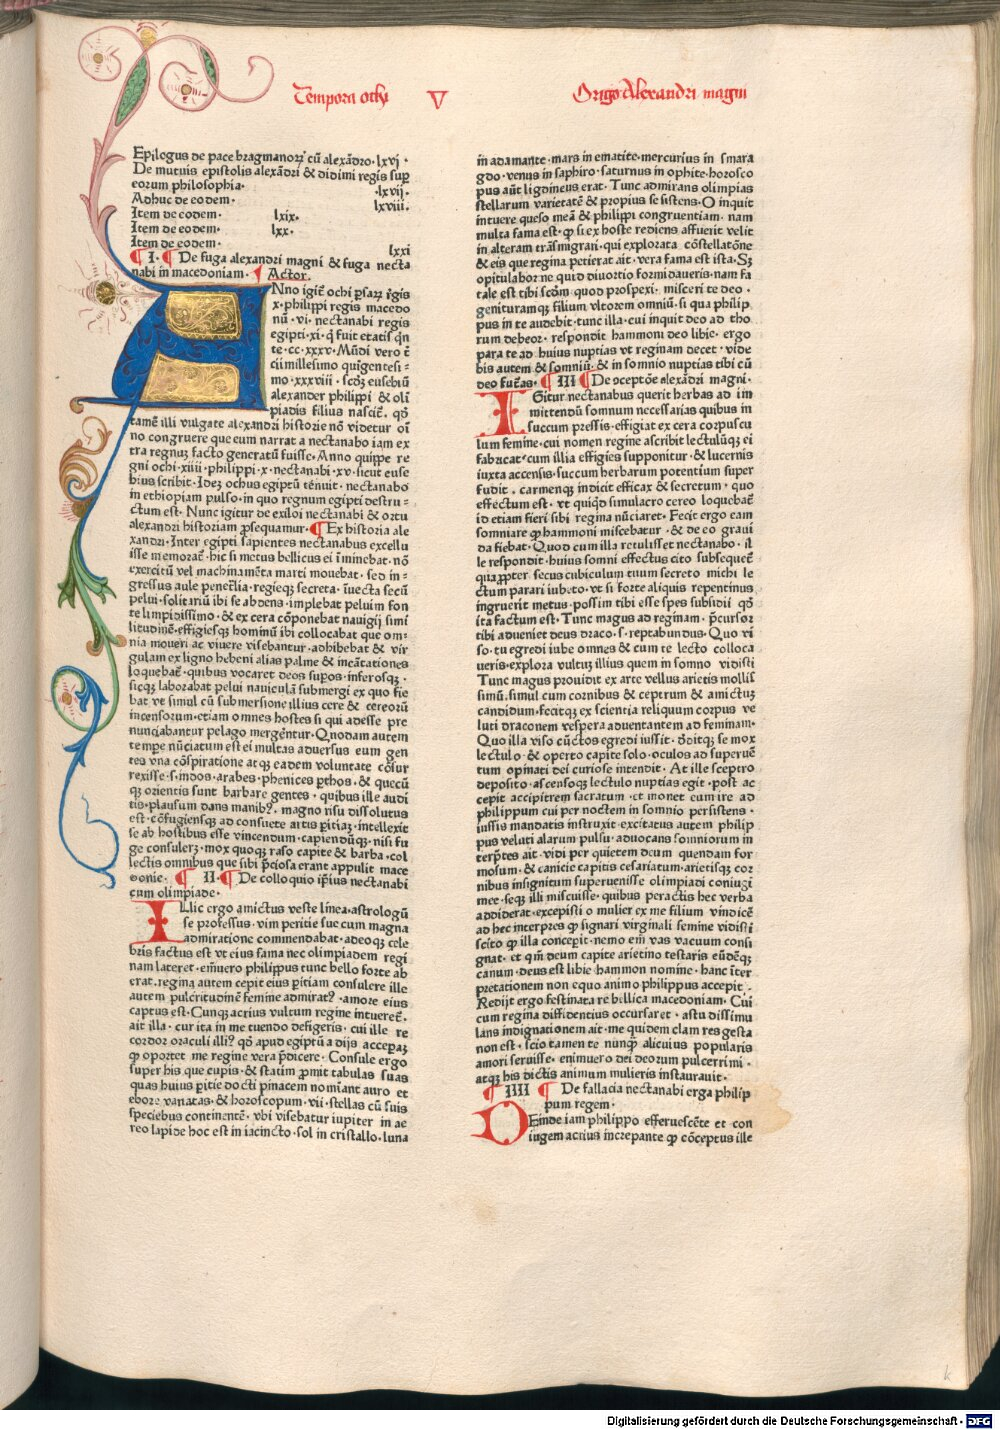 Tempora ochi V Origo Alexandri magni
Epilogus de pace bragmanoꝝ cũ alexãdro·lxvj·
De mutuis epistolis alexãdri & didimi regis suꝑ
eorum philosophia· ·lxvij·
Adhuc de eodem· lxviij.
Item de eodem· lxix·
Item de eodem· lxx·
Item de eodem· lxxi
¶ I· ¶ De fuga alexandri magni & fuga necta
nabi in macedoniam· ¶ Actor.
ANno igiť ochi ꝑsaꝝ ṙgis
x·philippi regis macedo
nũ·vi·nectanabi regis
egipti·xi·q̇ fuit etatis q̃n
te·cc·xxxv·Mũdi vero ť
cii millesimo quigentesi=
mo·xxxviij·scďʒ eusebiũ
alexander philippi & oli
piadis filius nasciť. qď
tamẽ illi vulgate alexandri historie nõ videtur oĩ
no congruere que cum narrat a nectanabo iam ex
tra regnuʒ facto generatũ fuisse·Anno quippe re
gni ochi·xiiij·philippi·x·nectanabi·xv·sicut euse
bius scribit·Ideʒ ochus egiptũ tẽnuit·nectanabo
in ethiopiam pulso·in quo regnum egipti destru=
ctum est·Nunc igitur de exilioi nectanabi & ortu
alexandri historiam ꝑsequamur·¶Ex historia ale
xandri·Inter egipti sapientes nectanabus excellu
isse memorať·hic si metus bellicus ei ĩminebat·nõ
exercitũ vel machinamẽta marti mouebat·sed in=
gressus aule peneťlia·regieqʒ secreta·ĩuecta secũ
pelui·solitariũ ibi se abdens·implebat peluim fon
te limpidissimo·& ex cera cõponebat nauigij simi
litudinẽ·effigiesqʒ hominũ ibi collocabat que om=
nia moueri ac viuere visebantur·adhibebat & vir
gulam ex ligno hebeni alias palme & incãtationes
loquebať·quibus vocaret deos supos·inferosqʒ·
sicqʒ laborabat pelui nauiculã submergi ex quo fie
bat ve simul cũ submersione illius cere & cereorũ
incensorum·etiam omnes hostes si qui adesse pre
nunciabantur pelago mergẽntur·Quodam autem
tempe nũciatum est ei multas aduersus eum gen
tes vna cõspiratione atqʒ eadem voluntate cõsur
rexisse·s·indos·arabes·phenices ꝑthos·& quecũ
qʒ orientis sunt barbare gentes·quibus ille audi
tis·plausum dans manibʒ·magno risu dissolutus
est·cõfugiensqʒ ad consuete artis ꝑitiaʒ·intellexit
se ab hostibus esse vincendum·capiendũqʒ·nisi fu
ge consulerʒ·mox quoqʒ raso capite & barba·col
lectis omnibus que sibi p̃ciosa erant appulit mace
donie· ¶ II·¶De colloquio ip̃ius nectanabi
cum olimpiade·
ILlic ergo amictus veste linea·astrologũ
se professus·vim peritie sue cum magna
admiratione commendabat·adeoqʒ cele
bris factus est vt eius fama nec olimpiadem regi
nam lateret·em̃uero philippus tunc bello forte ab
erat·regina autem cepit eius ꝑitiam consulere ille
autem pulcritudinẽ femine admiratʒ·amore eius
captus est·Cunqʒ acrius vultum regine intuereť·
ait illa·cur ita in me tuendo defigeris·cui ille re
cordor oraculi illiʒ qď apud egiptũ a dijs acceꝑaʒ
ꝙ oportet me regine vera p̃dicere·Consule ergo
super his que cupis·& statim ꝑmit tabulas suas
quas huius ꝑitie docti pinacem nomĩant auro et
ebore variatas·& horoscopum·vii·stellas cũ suis
speciebus continentẽ·vbi visebatur iupiter in ae
reo lapide hoc est in iacincto·sol in cristallo·luna
in adamante·mars in ematite·mercurius in smara
gdo·venus in saphiro·saturnus in ophite·horosco
pus aũt ligdineus erat·Tunc admirans olimpias
stellarum varietatẽ & propius se sistens·O inquit
intuere queso meã & philippi congruentiam·nam
multa fama est·ꝙ si ex hoste rediens affuerit velit
in alteram trãsmigrari·qui explorata cõstellatõne
& eis que regina petierat ait·vera fama est ista·Sʒ
opitulabor ne quid diuortio formidaueris·nam fa
tale est tibi scďm quod prospexi·misceri te deo·
genituramqʒ filium vltorem omniũ·si qua philip
pus in te audebit·tunc illa·cui inquit deo ad tho
rum debeor·respondit hammoni deo libie·ergo
para te ad huius nuptias vt reginam decet·vide
bis autem & somniũ·& in somnio nuptias tibi cũ
deo futãs·¶ III ¶De oceptõe alexãdri magni·
IGitur nectanabus querit herbas ad im
mittendũ somnum necessarias quibus in
succum pressis·effigiat ex cera corpuscu
lum femine·cui nomen regine ascribit lectulũqʒ ei
fabricat·cum illia effigies supponitur·& lucernis
iuxta accensis·succum herbarum potentium super
fudit·carmenqʒ indicit efficax & secretum·quo
effectum est·vt quiqď simulacro cereo loquebať
id etiam fieri sibi regina nũciaret·Fecit ergo eam
somniare ꝙ hammoni miscebatur·& de eo graui
da fiebat·Quod cum illa retulisset nectanabo·il
le respondit·huius somni effectus cito subsequeť
quaꝓpter secus cubiculum tuum secreto michi le
ctum parari iubeto·vt si forte aliquis repentinus
ingruerit metus·possim tibi esse spes subsidii qď
ita factum est·Tunc magus ad reginam·p̃cursor
tibi adueniet deus draco·s·reptabundus·Quo vi
so·tu egredi iube omnes & cum te lecto colloca
ueris·explora vultuʒ illius quem in somno vidisti
Tunc magus prouidit ex arte vellus arietis mollis
simũ·simul cum cornibus & ceptrum & amictuʒ
candidum·fecitqʒ ex scientia reliquum corpus ve
luti draconem vespera aduentantem ad feminam·
Quo illa viso cũctos egredi iussit·dditqʒ se mox
lectulo·& operto capite solo·oculos ad superuẽ
tum opinati dei curiose intendit·At ille sceptro
deposito·ascensoqʒ lectulo nuptias egit·post ac
cepit accipitrem sacratum·et monet eum ire ad
philippum cui per noctem in somnio persistens·
iussis mandatis instruxit·excitatus autem philip
pus veluti alarum pulsu·aduocans somniorum in
terp̃tes ait·vidi per quietem deum quendam for
mosum·& canicie capitis cesariatum·arietisqʒ cor
nibus insignitum superuenisse olimpiadi coniugi
mee·seqʒ illi miscuisse·quibus peractis hec verba
addiderat·excepisti o mulier ex me filium vindicẽ
ad hec interpres ꝙ signari virginali femine vidisti
scito ꝙ illa concepit·nemo em̃ vas vacuum consi
gnat·et qm̃ deum capite arietino testaris eũdẽqʒ
canum·deus est libie hammon nomine·hanc ĩter
pretationem non equo animo philippus accepit·
Redijt ergo festinata re bellica macedoniam·Cui
cum regina diffidentius occursaret·astu dissimu
lans indignationem ait·me quidem clam res gesta
non est·scio tamen te nunq̃ alicuius popularis
amori seruisse·enimuero dei deorum pulcerrimi·
atqʒ his dictis animum mulieris instaurauit·
¶ IIII ¶ De fallacia nectanabi erga philip
pum regem·
DEinde iam philippo efferuescẽte et con
iugem acrius increpante ꝙ cõceptus ille
k
Digitalisierung gefördert durch die Deutsche Forschungsgemeinschaft - DFG